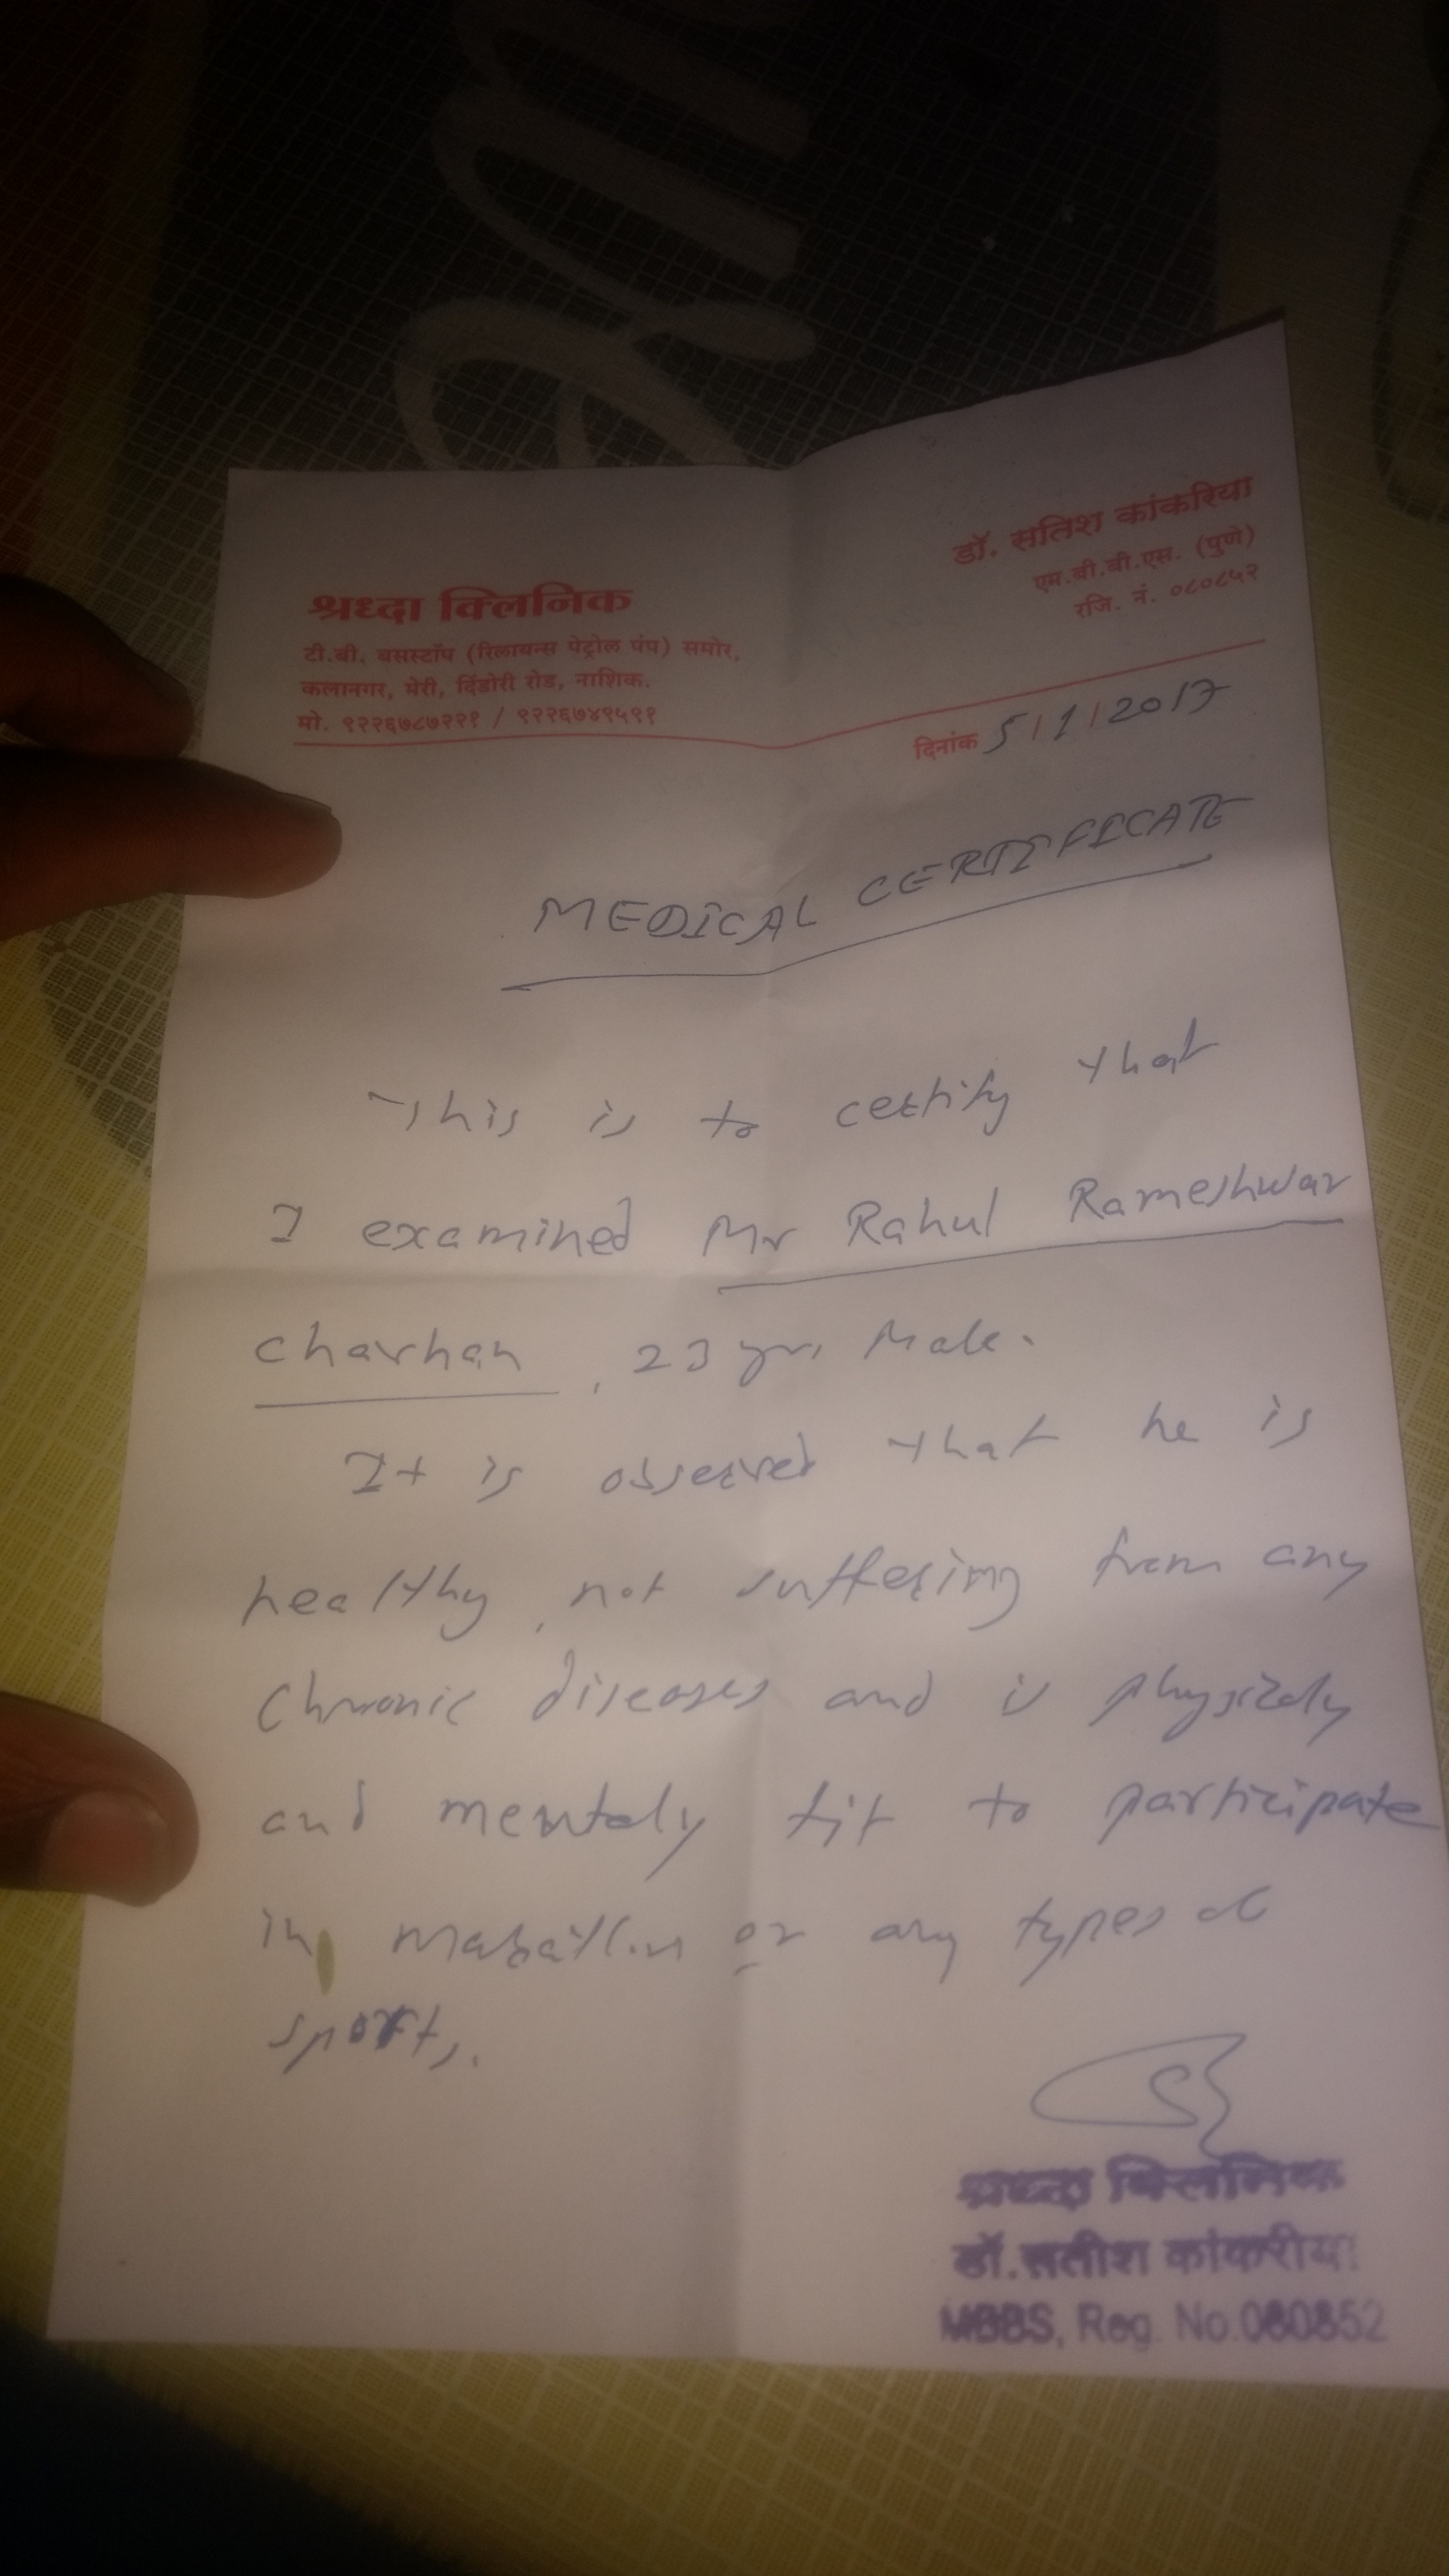 श्रध्दा क्लिनिक
टी.बी. बसस्टॉप (रिलायन्स पेट्रोल पंप) समोर,
कलानगर, मेरी, दिंडोरी रोड, नाशिक.
मो. ९२२६७८७२२१ / ९२२६७४९५९१
डॉ. सतिश कांकरिया
एम.बी.बी.एस. (पुणे)
रजि. नं. ०८०८५२
दिनांक 5/1/2017
MEDICAL CERTIFICATE
This is to certify that
I examined Mr Rahul Rameshwar
Chavhan, 23 yrs Male.
It is observed that he is
healthy, not suffering from any
Chronic diseases and is physicaly
and mentaly fit to participate
in marathon or any types of
sports.
श्रध्दा क्लिनिक
डॉ.सतीश कांकरीया
MBBS, Reg. No.080852